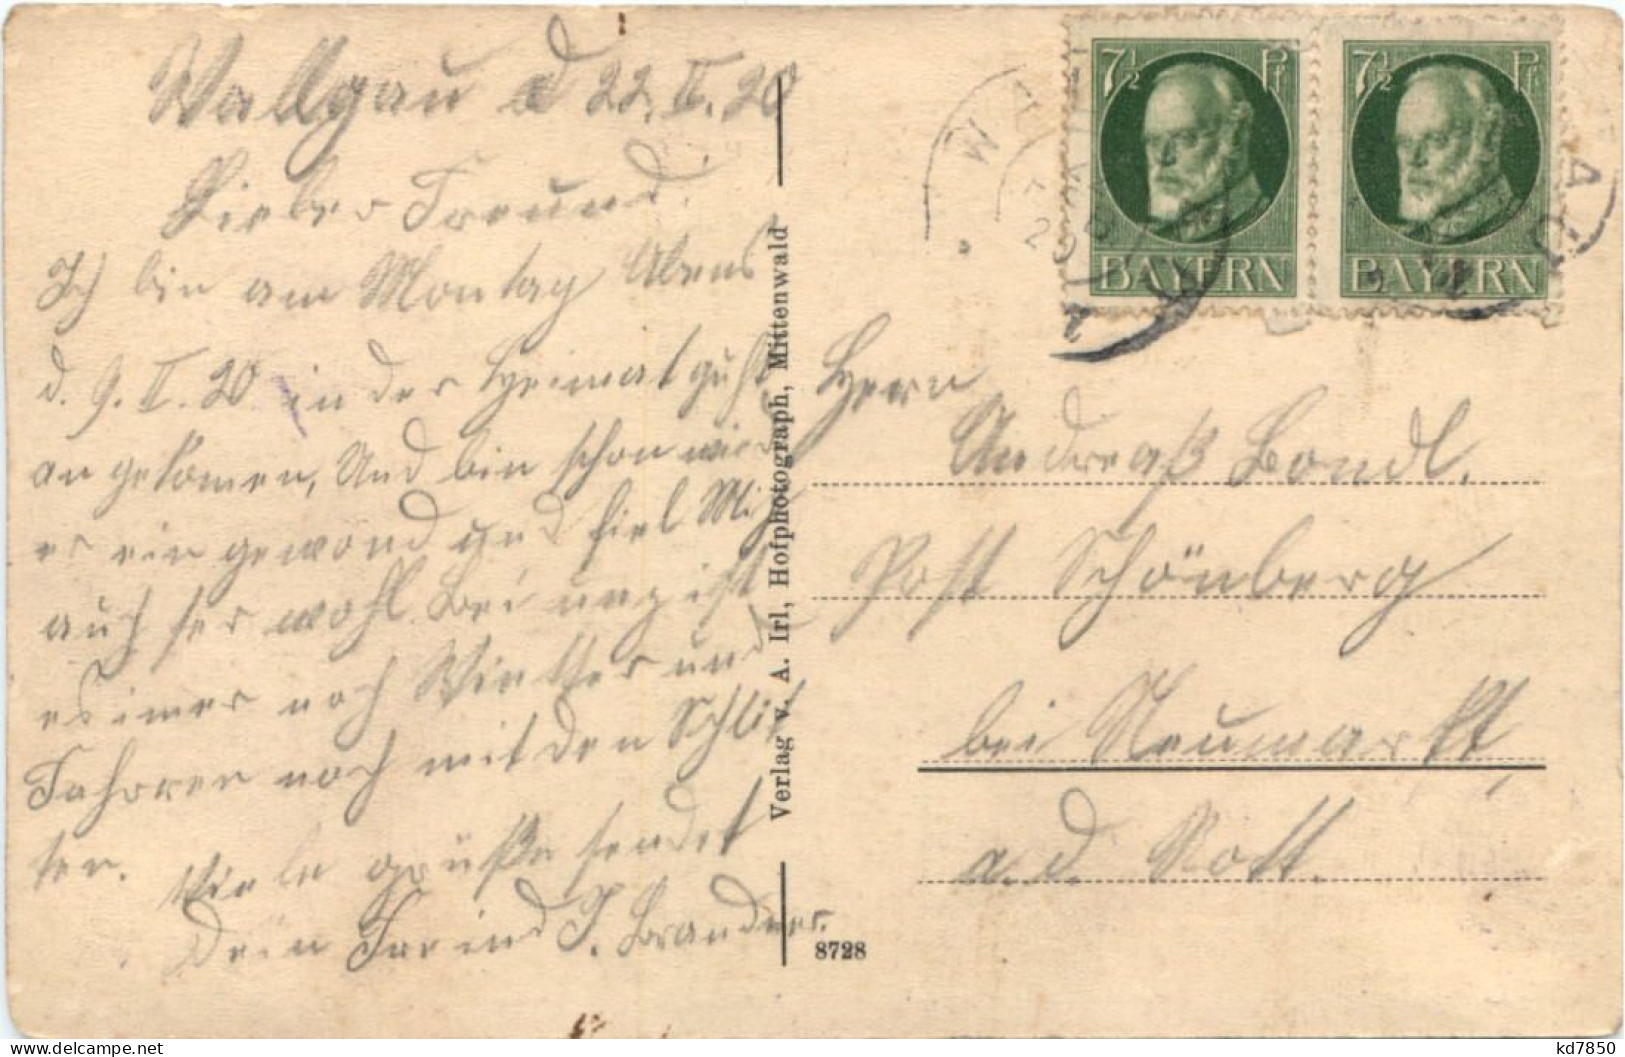 Wallgau d 22. II. 20
Lieber Freund!
Ich bin am Montag Abens
d. 9. II. 20 in der Heimat guht
an gekomen, Und bin schon wied
er ein gewond und fiel Mich
auch ser wohl. Bei unz ist
es imer noch Wintter und
Fahren noch mit den Schlit
ten.
Viele grüße sendet
Dein Freind J. Brandner.
Verlag v. A. Irl, Hofphotograph, Mittenwald
8728
7½ Pf
BAYERN
7½ Pf
BAYERN
WALLGAU
Herrn
Andreaß Bondl.
Post Schönberg
bei Neumarkt,
a. d. Rott.
kd7850